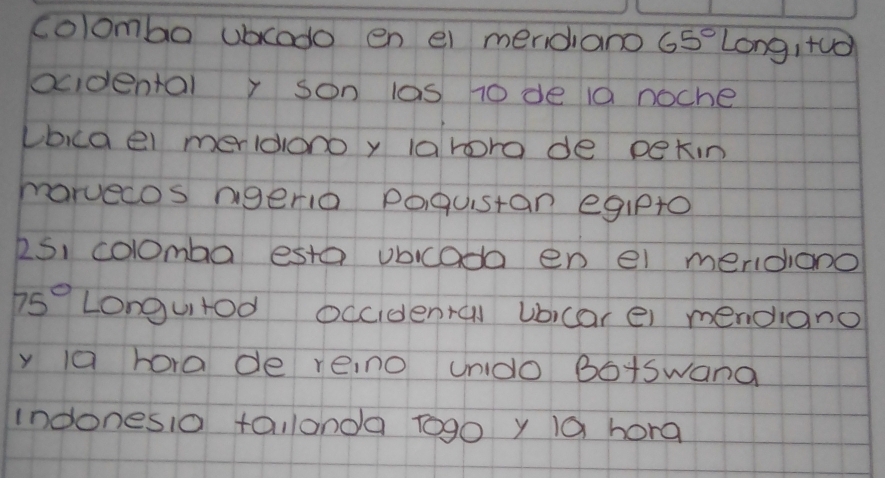 colombo ubicado en el meridiano 65° Longitud
ocidental y son las 10 de la noche
Ubica el meridiano y la hora de pekin
maruecos nigeria Paquistan egipto
2 si colombia esta ubicada en el meridiano
75° Longuitod occidental Ubicar el meridiano
y la hora de reino unido Botswana
indonesia tailanda Togo y la hora